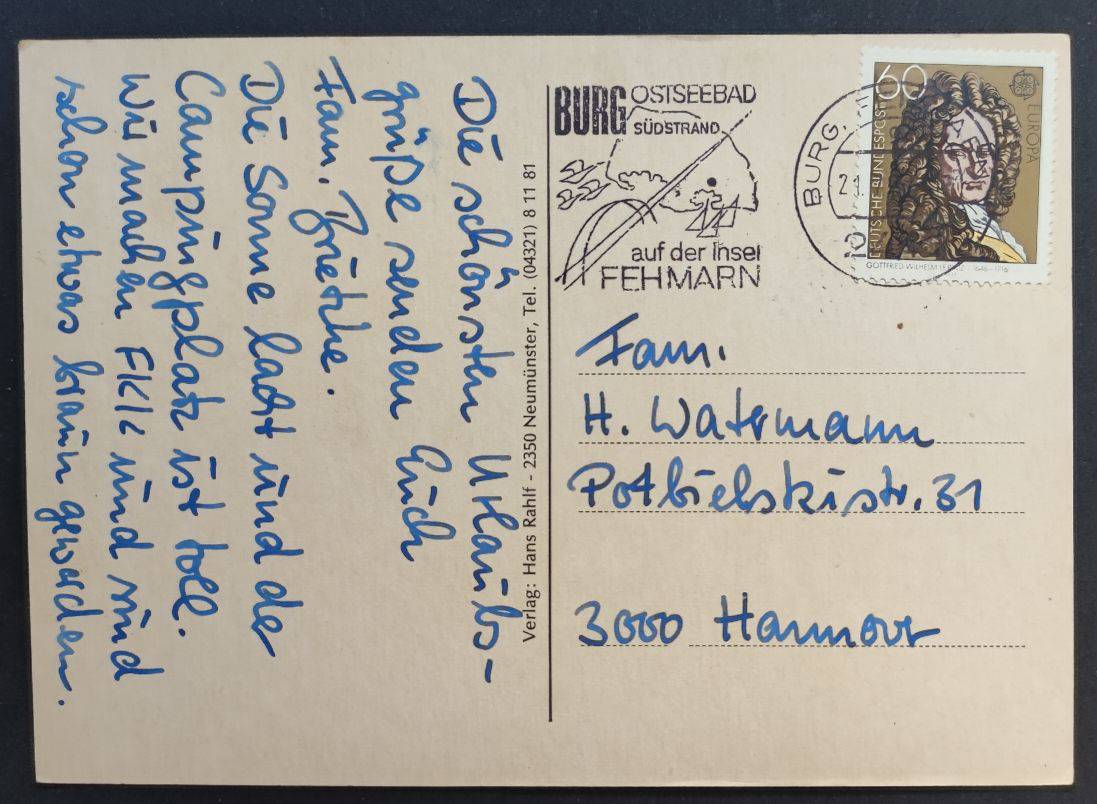 Die schönsten Urlaubs-
grüße senden Euch
Fam.
Die Sonne lacht und der
Campingplatz ist toll.
Wir machen FKK und sind
schon etwas braun geworden.
Verlag: Hans Rahlf - 2350 Neumünster, Tel. (04321) 8 11 81
BURG OSTSEEBAD
SÜDSTRAND
auf der Insel
FEHMARN
BURG
60
EUROPA
DEUTSCHE BUNDESPOST
GOTTFRIED WILHELM LEIBNIZ · 1646-1716
Fam.
H. Watermann
Potbielskistr. 31
3000 Hannover